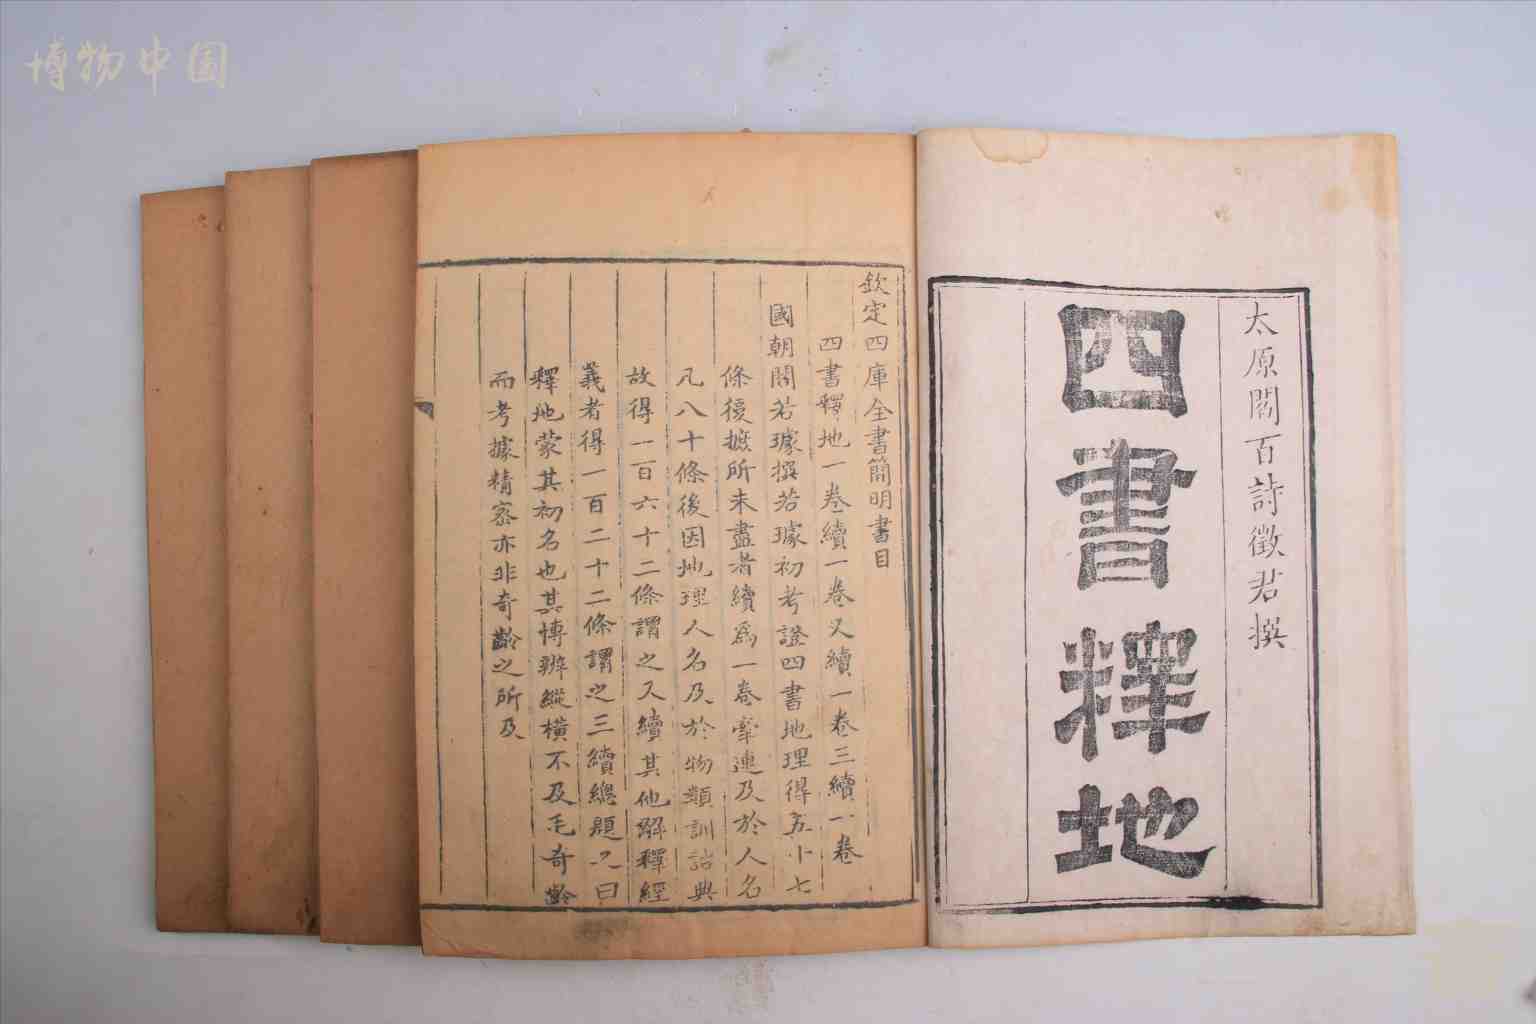 博物中国
太原閻百詩徵君撰
四書釋地
欽定四庫全書簡明書目
四書釋地一卷續一卷又續一卷三續一卷
國朝閻若璩撰若璩初考證四書地理得五十七
條復摭所未盡者續爲一卷牽連及於人名
凡八十條後因地理人名及於物類訓詁典
故得一百六十二條謂之又續其他解釋經
義者得一百二十二條謂之三續總題之曰
釋地蒙其初名也其博辨縱橫不及毛奇齡
而考據精密亦非奇齡之所及